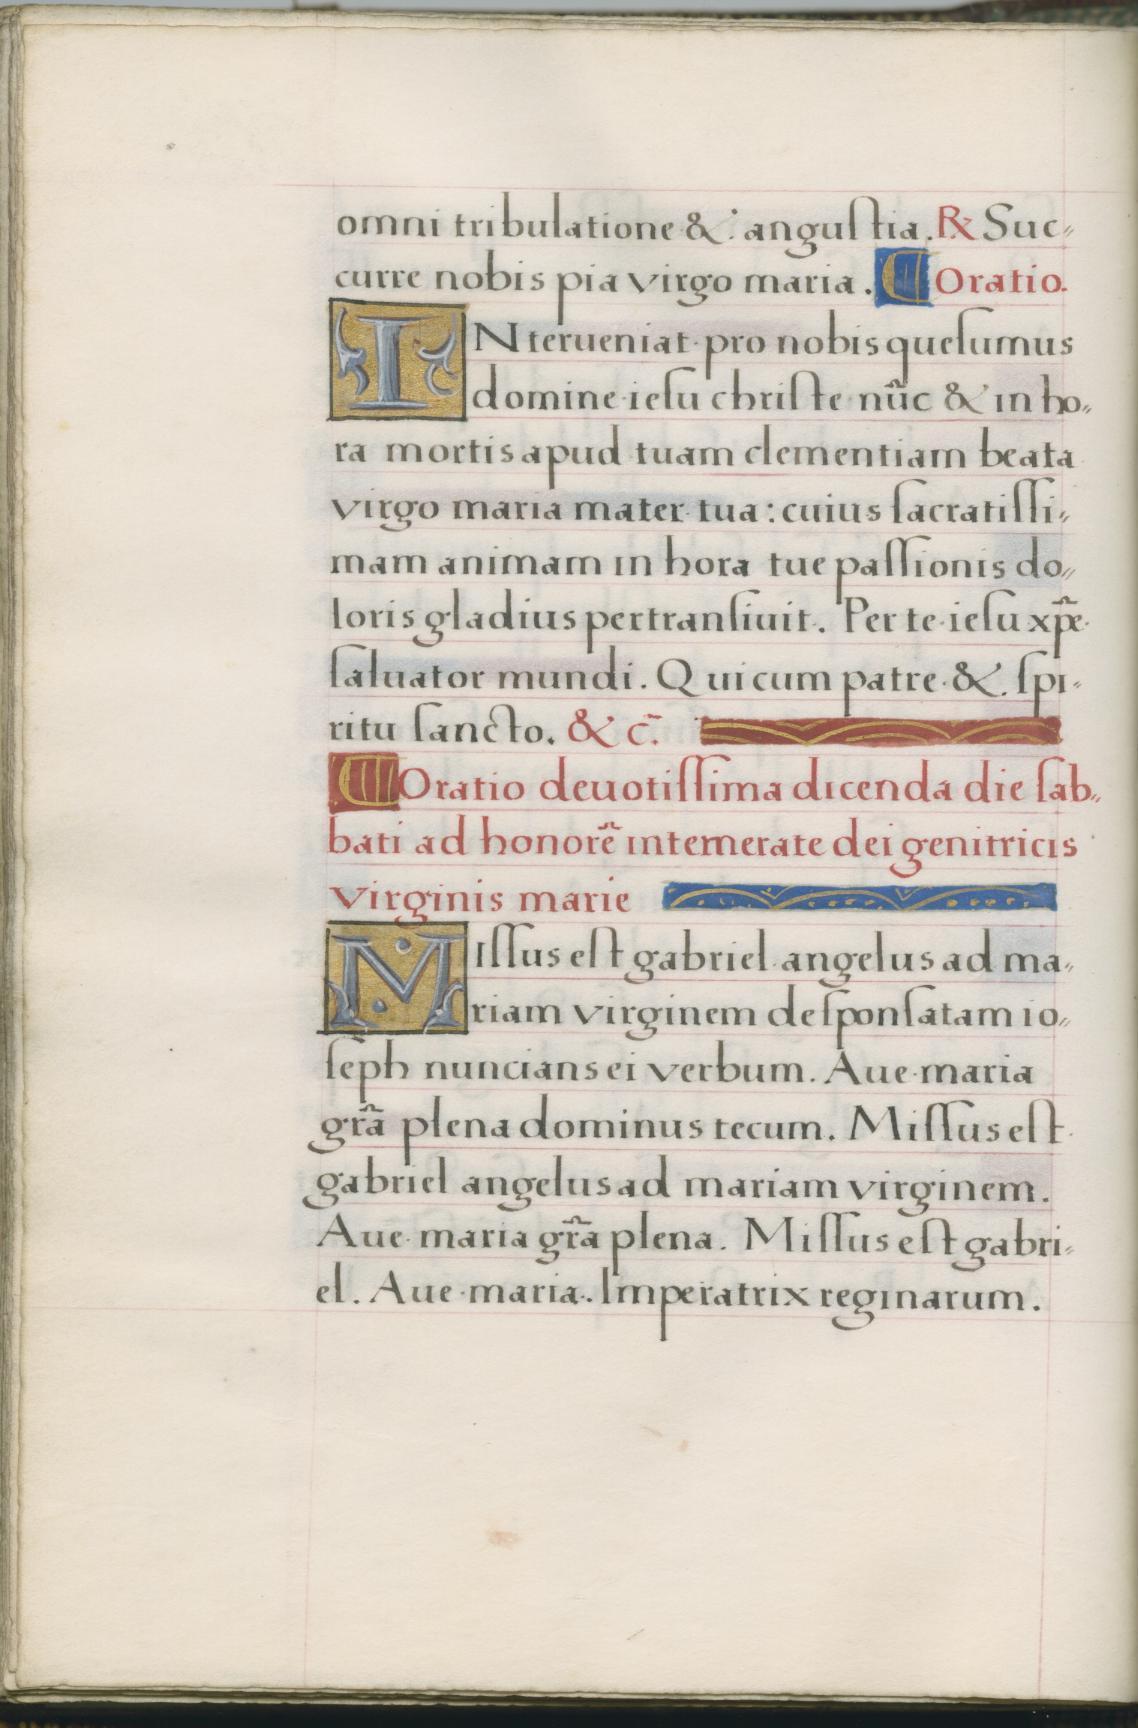 omni tribulatione & anguſtia. ℞ Suc-
curre nobis pia virgo maria. ¶ Oratio.
INterueniat pro nobis queſumus
domine ieſu chriſte nūc & in ho-
ra mortis apud tuam clementiam beata
virgo maria mater tua: cuius ſacratiſſi-
mam animam in hora tue paſſionis do-
loris gladius pertranſiuit. Per te ieſu xp̄e
ſaluator mundi. Qui cum patre & ſpi-
ritu ſancto. & c̄.
¶ Oratio deuotiſſima dicenda die ſab-
bati ad honorē intemerate dei genitricis
virginis marie
MIſſus eſt gabriel angelus ad ma-
riam virginem deſponſatam io-
ſeph nuncians ei verbum. Aue maria
gr̄a plena dominus tecum. Miſſus eſt
gabriel angelus ad mariam virginem.
Aue maria gr̄a plena. Miſſus eſt gabri-
el. Aue maria. Imperatrix reginarum.